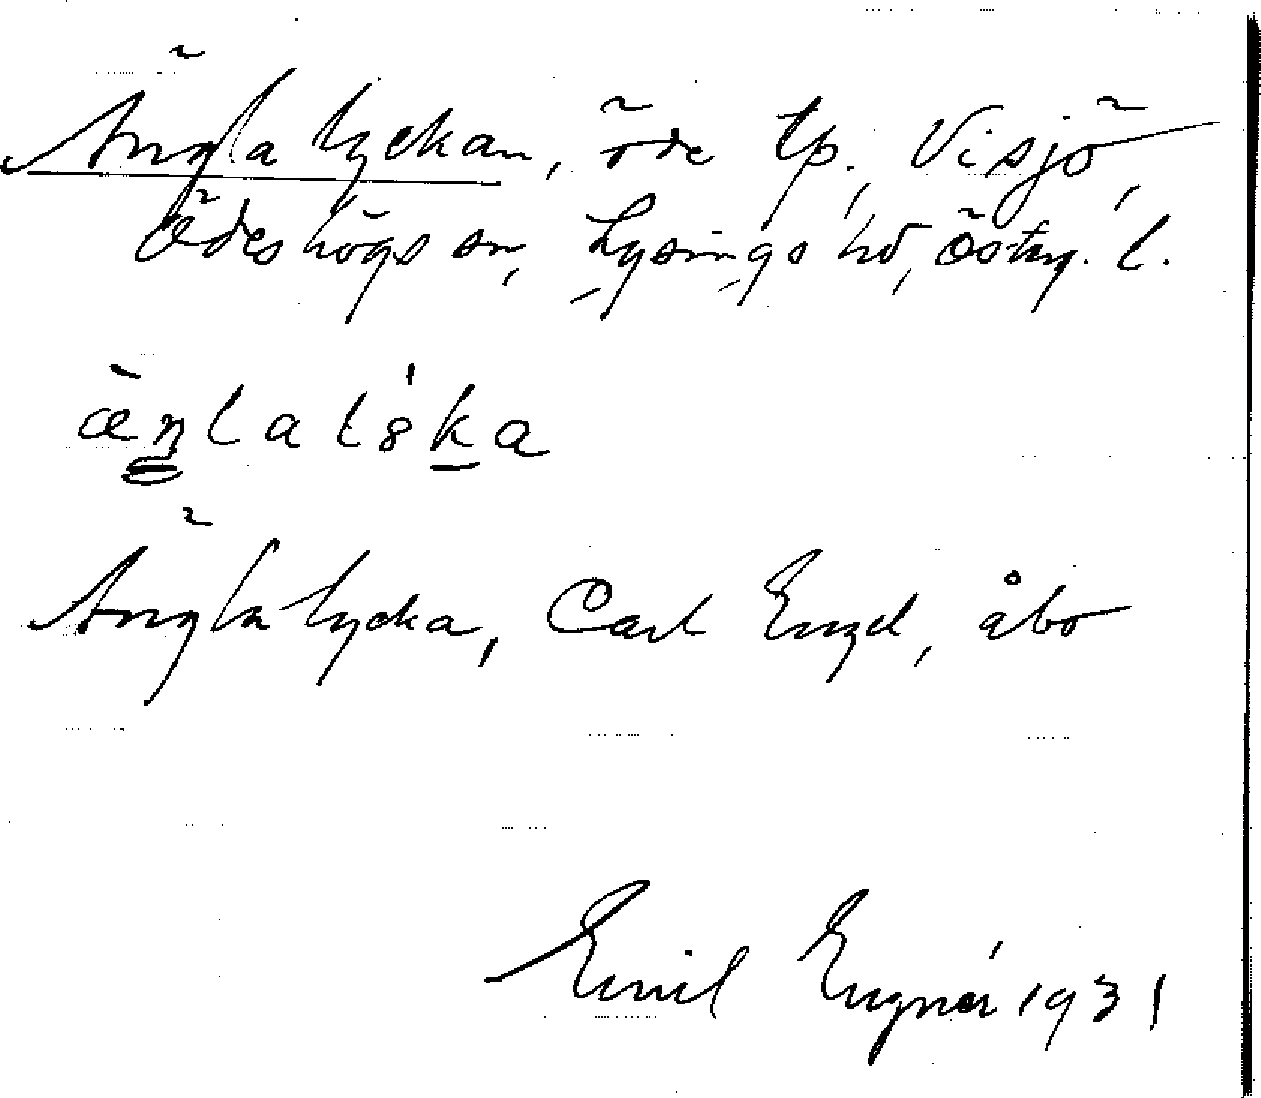 Änglalyckan, öde tp., Visjö,
Ödeshögs sn, Lysings hd, Östg. l.
æ̀ŋlalɵ́ka
Änglalycka, Carl Engel, åbo
Emil Engnér 1931